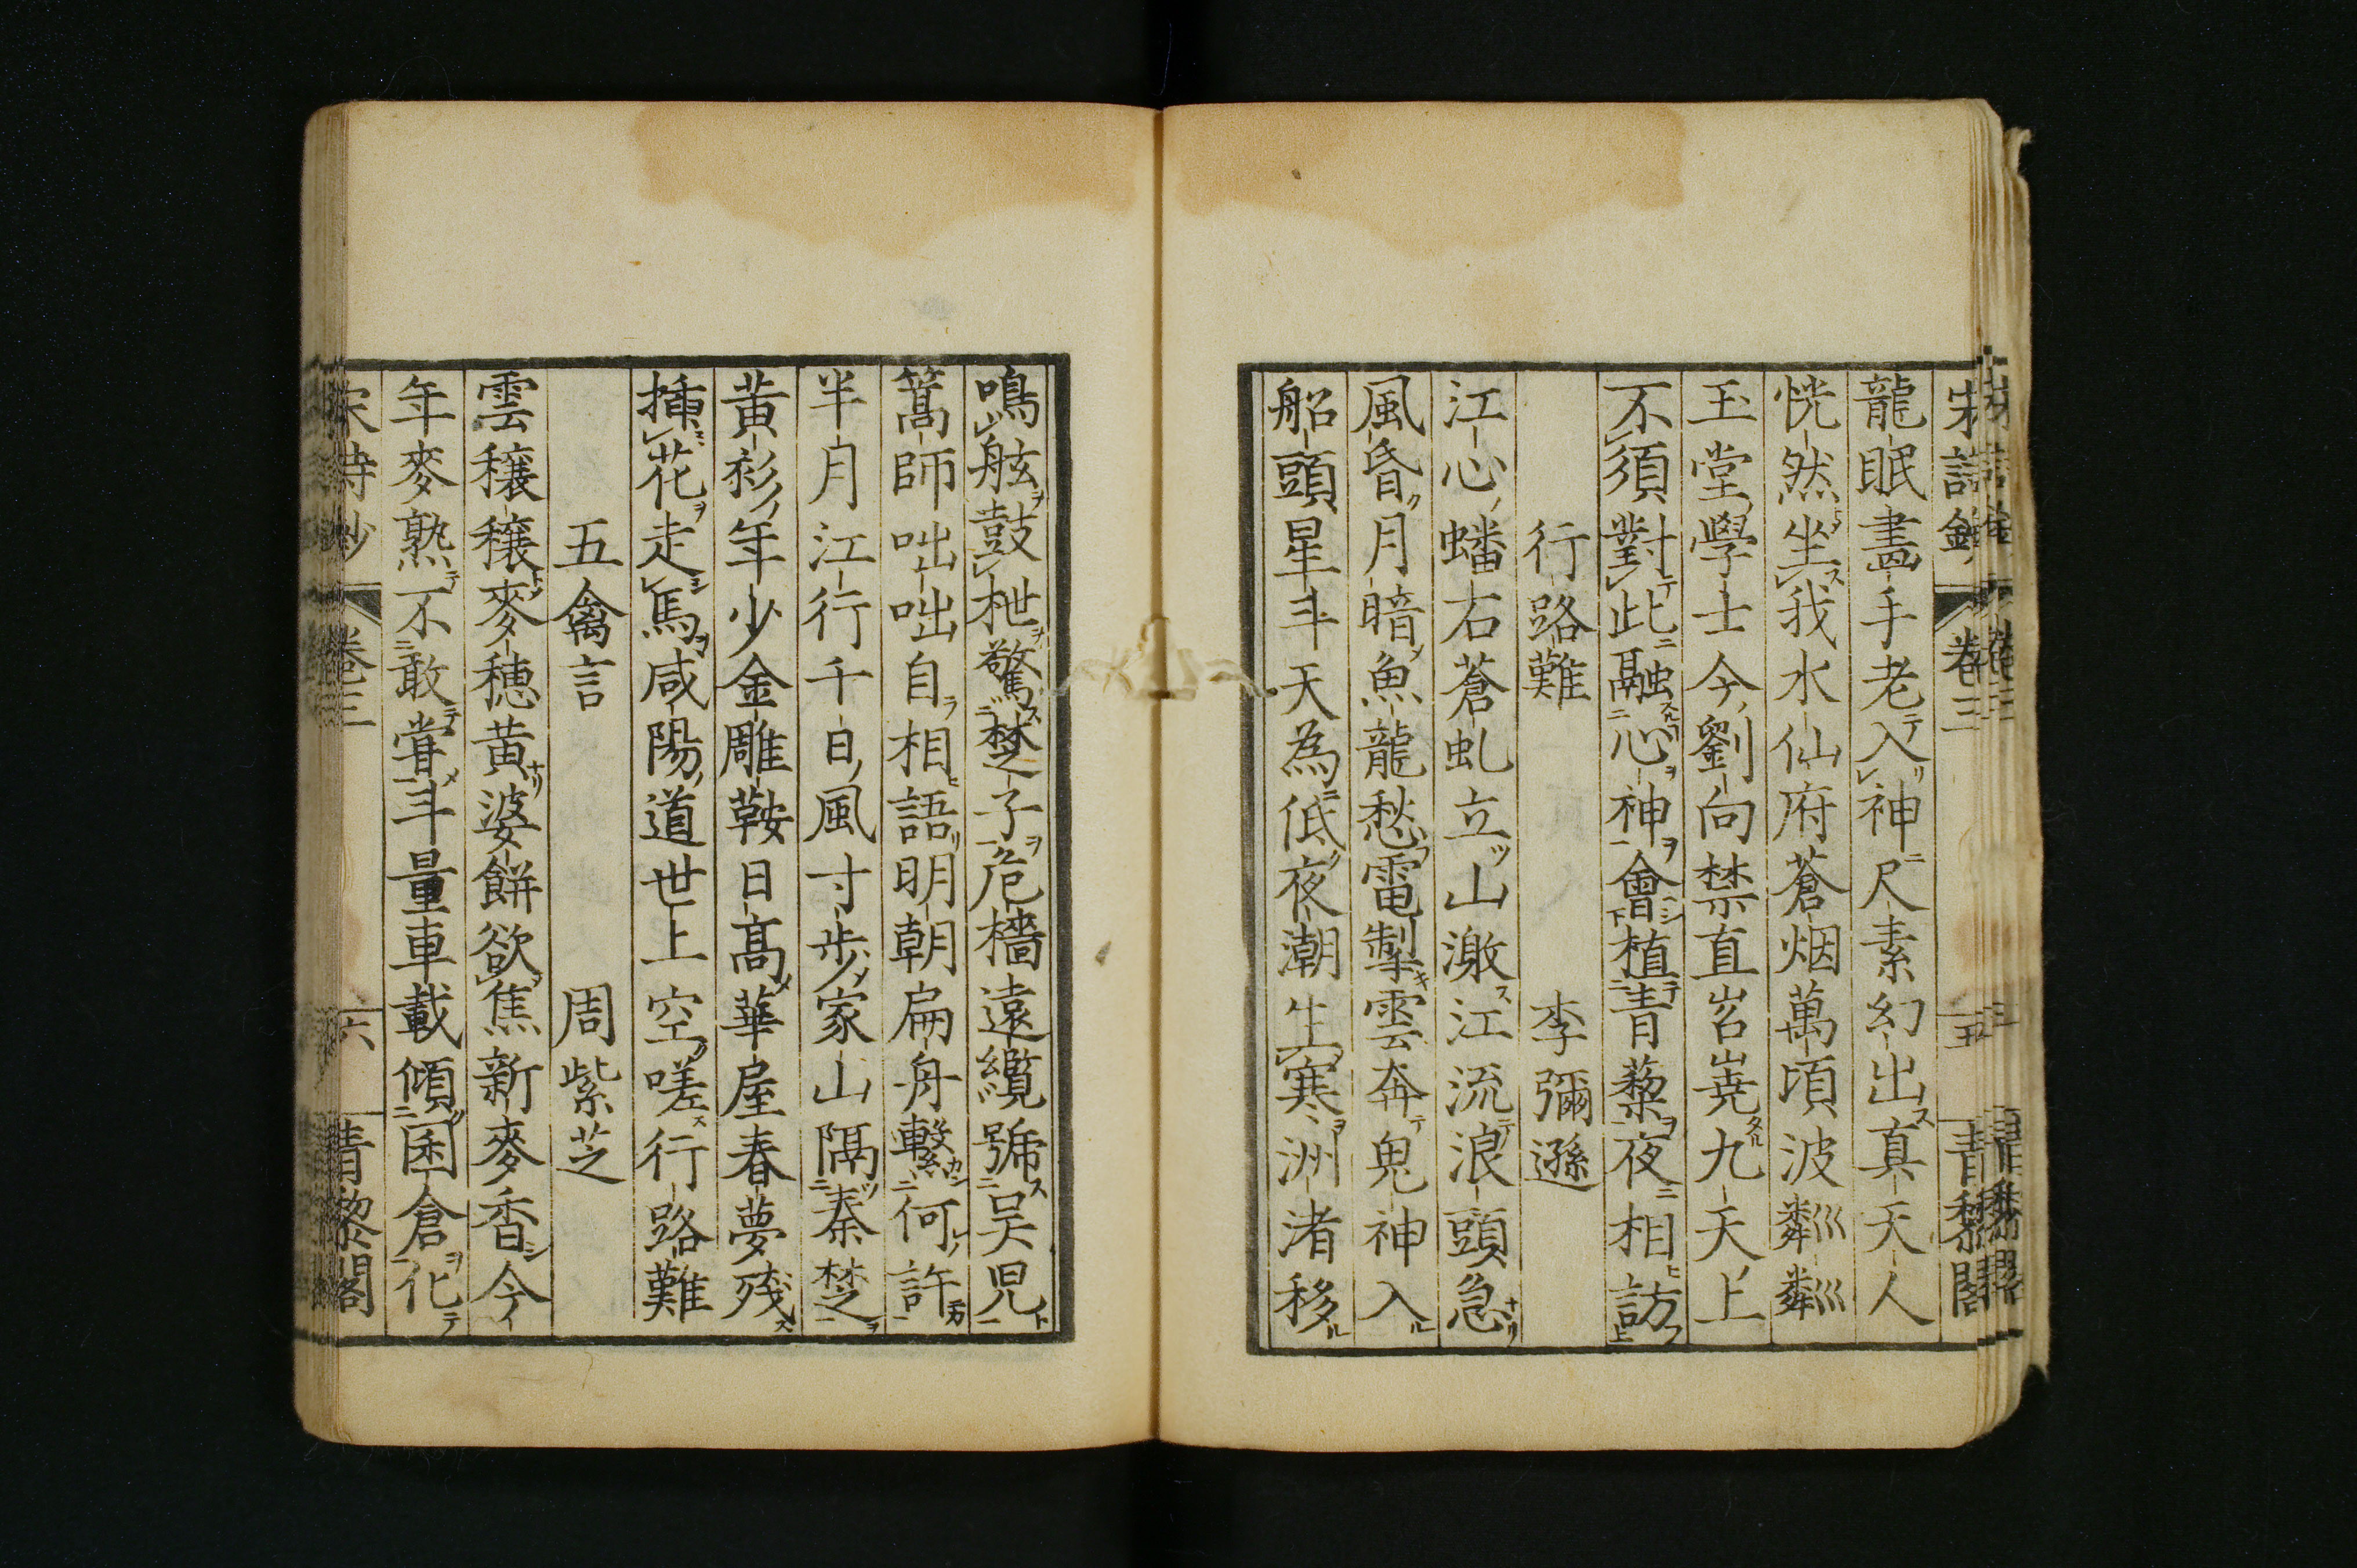 宋詩鈔 卷三 五 青藜閣
龍眠畫手老入神尺素幻出真天人
恍然坐我水仙府蒼烟萬頃波粼粼
玉堂學士今劉向禁直岧嶤九天上
不須對此融心神會植青藜夜相訪
行路難 李彌遜
江心蟠石蒼虬立山激江流浪頭急
風昏月暗魚龍愁電掣雲奔鬼神入
船頭星斗天為低夜潮生寒洲渚移
鳴舷鼓枻驚楚子危檣遠纜號吳児
篙師咄咄自相語明朝扁舟繫何許
半月江行千日風寸步家山隔秦楚
黃衫年少金雕鞍日高華屋春夢殘
插花走馬咸陽道世上空嗟行路難
五禽言 周紫芝
雲穰穰麥穗黃婆餅欲焦新麥香今
年麥熟不敢甞斗量車載傾囷倉化
宋詩鈔 卷三 六 青黎閣